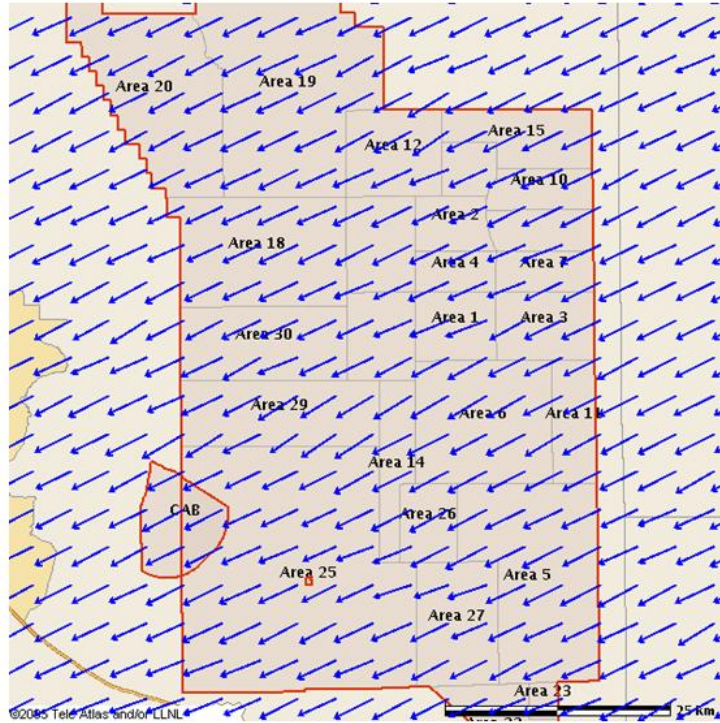 Area 19
Area 20
Area 15
Area 12
Area 10
Area 2
Area 18
Area 4
Area 7
Area 1
Area 3
Area 30
Area 29
Area 6
Area 11
Area 14
CAB
Area 26
Area 25
Area 5
Area 27
Area 23
©2005 Tele Atlas and/or LLNL
25 Km
Area 22